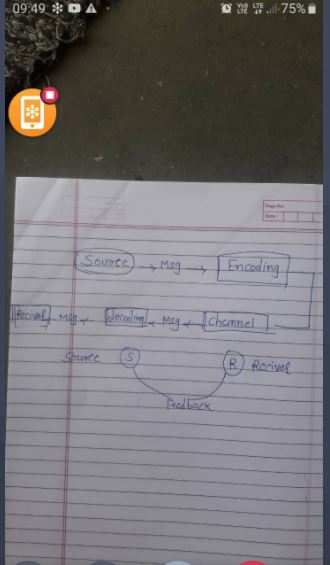 09:49
Vo)) LTE
LTE
75%
Page No.
Date :
Source → Msg → Encoding
Reciver Msg ← decoding ← Msg ← Channel
Source S R Reciver
Feedback